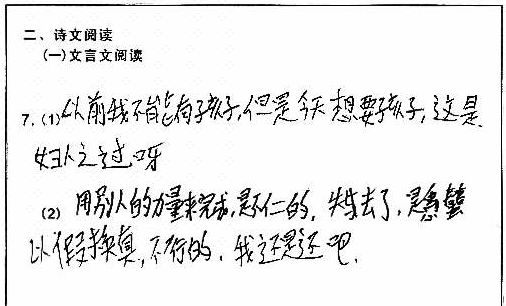 二、诗文阅读
(一)文言文阅读
7.(1)从前我不能有孩子,但是今天想要孩子,这是
妇人之过呀
(2) 用别人的力量来完成,是不仁的,失去了,是愚蠢
以假换真,不行的。我还是还吧.